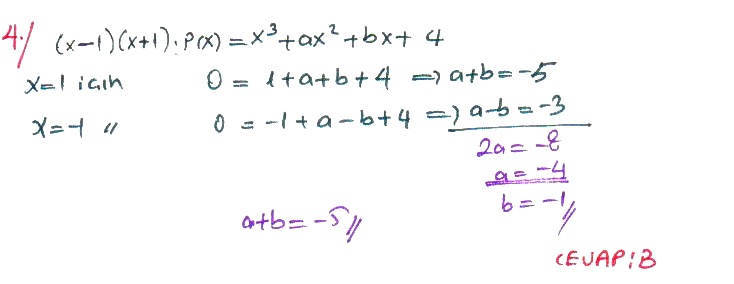 4·/ (x-1)(x+1).P(x) = x³+ax²+bx+ 4
x=1 için 0 = 1+a+b+4 => a+b=-5
x=-1 〃 0 = -1+a-b+4 => a-b=-3
2a=-8
a=-4
b=-1//
a+b=-5//
CEVAP:B